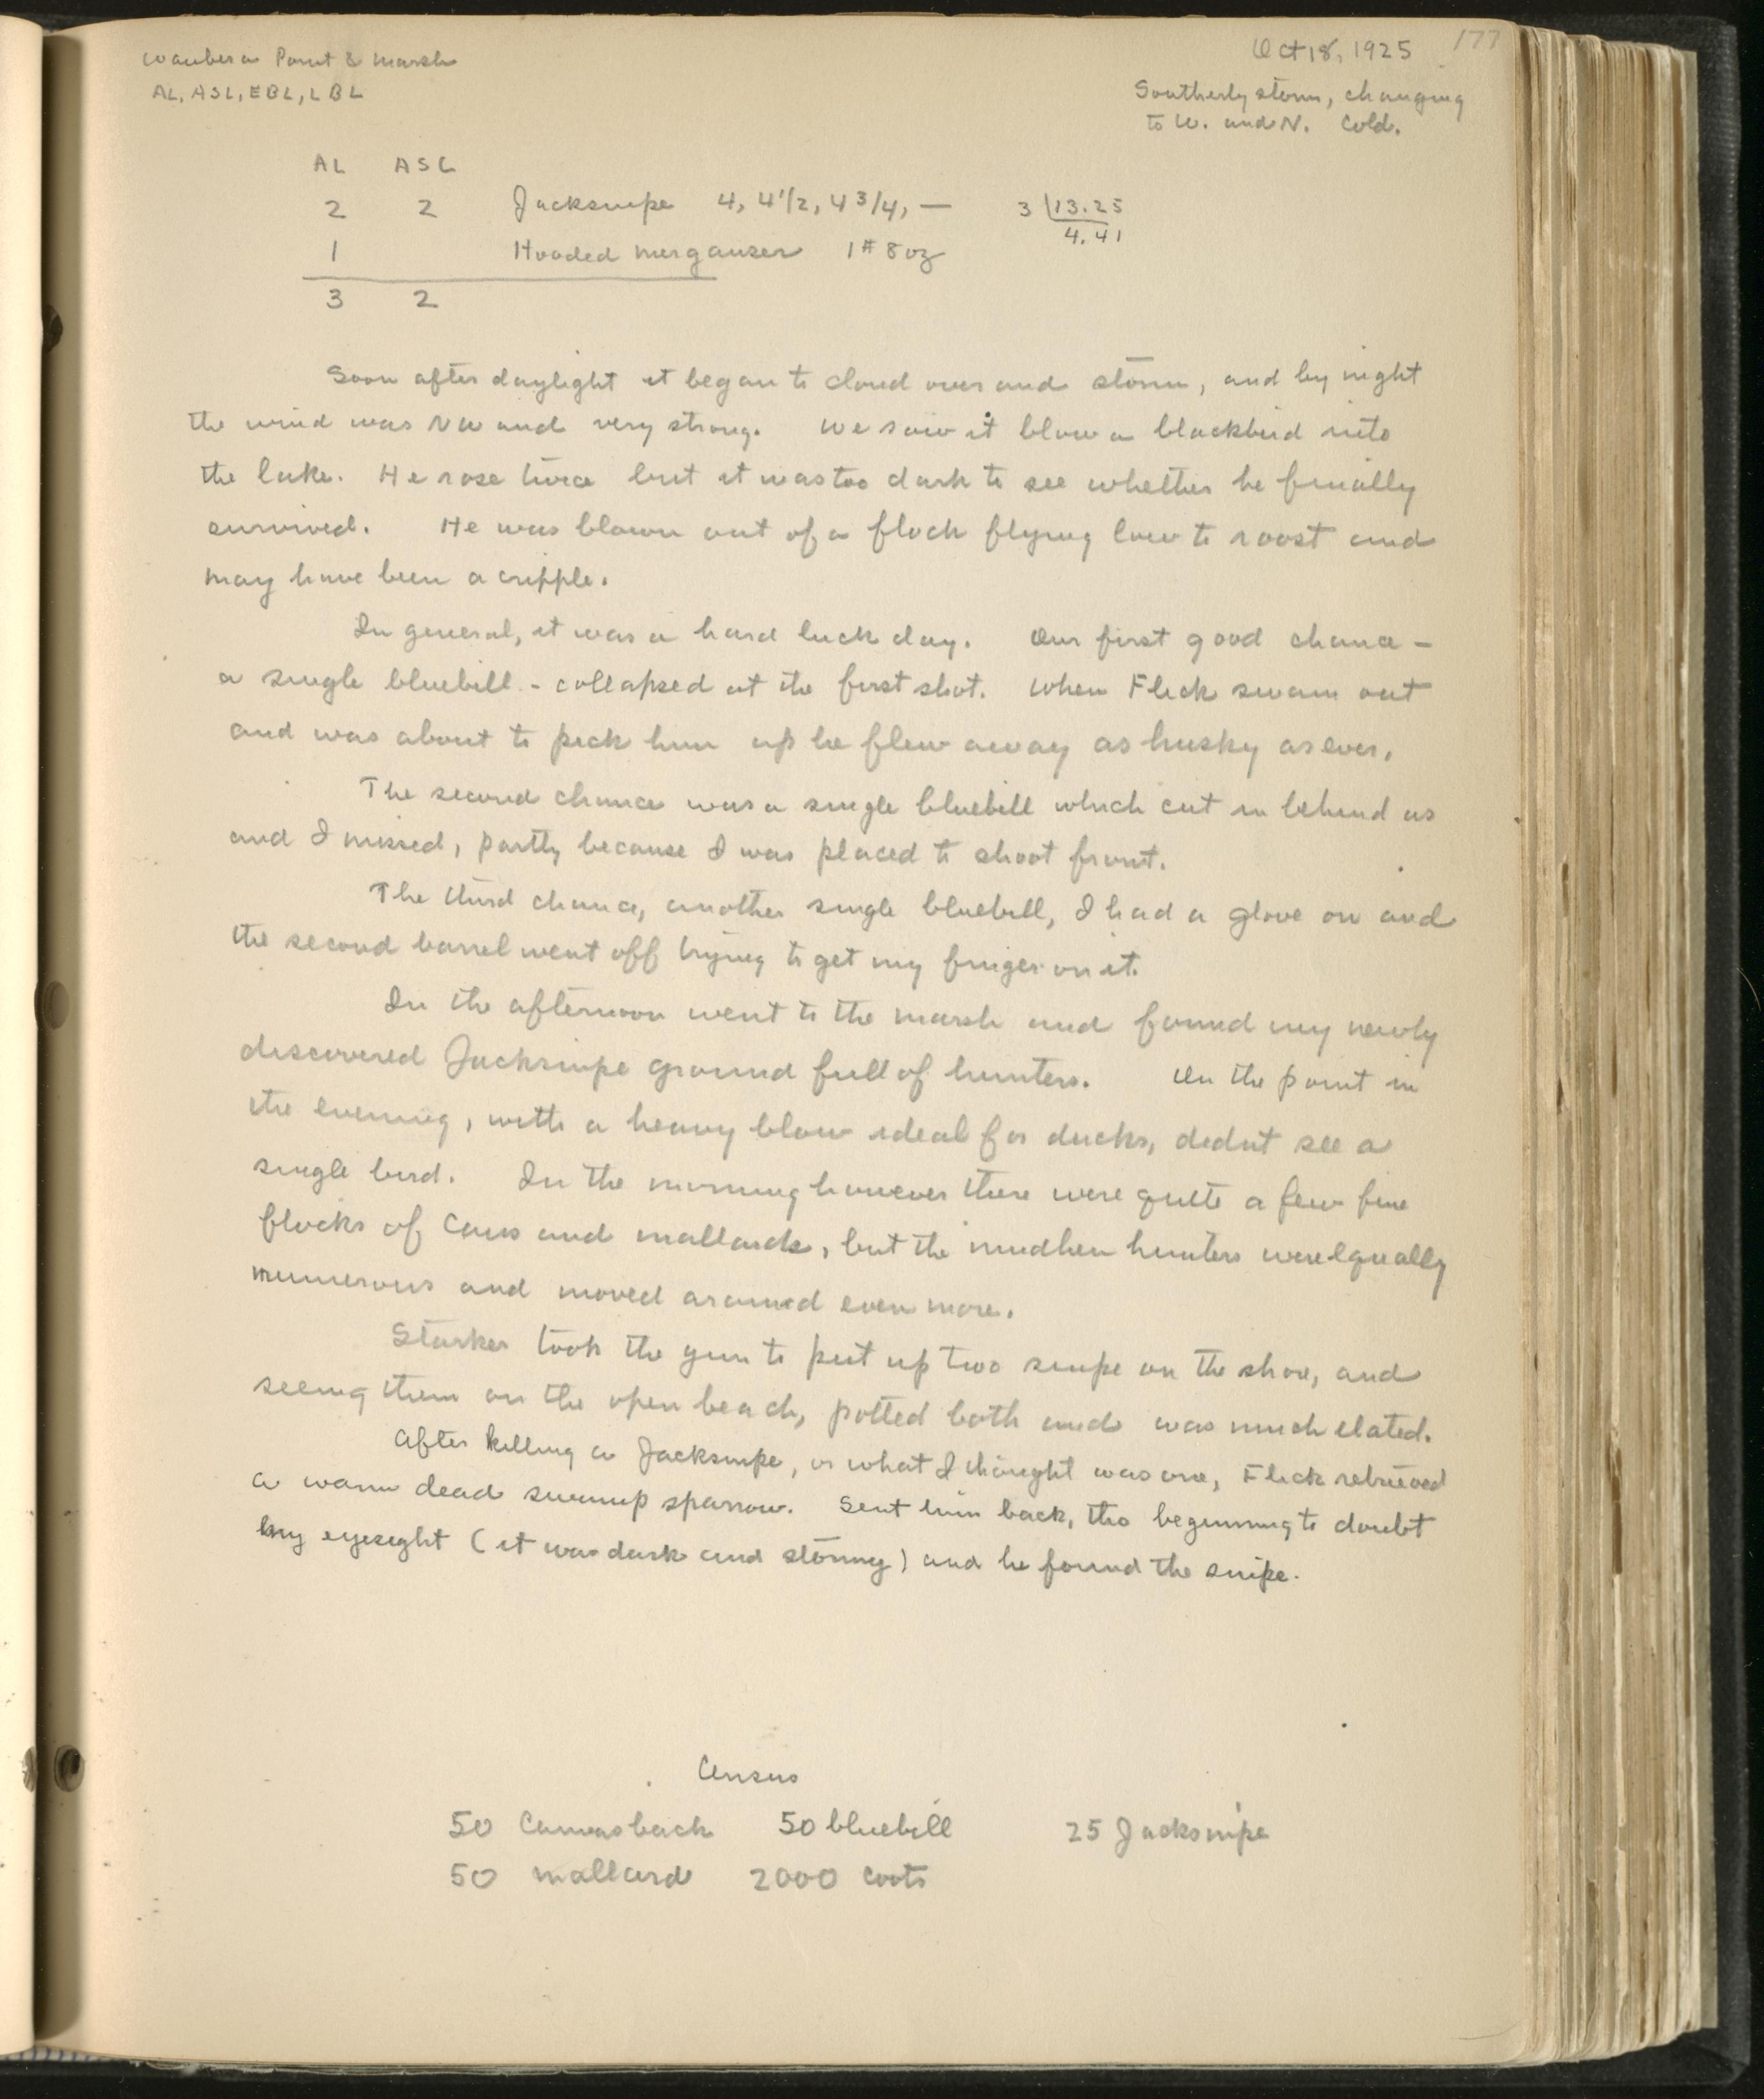 Waubesa Point & Marsh
AL, ASL, EBL, LBL
Oct 18, 1925
177
Southerly storm, changing
to W. and N. Cold.
AL ASL
2 2 Jacksnipe 4, 4 1/2, 4 3/4, — 3 | 13.25
4.41
1 Hooded merganser 1# 8 oz
3 2
Soon after daylight it began to cloud over and storm, and by night
the wind was NW and very strong. We saw it blow a blackbird into
the lake. He rose twice but it was too dark to see whether he finally
survived. He was blown out of a flock flying low to roost and
may have been a cripple.
In general, it was a hard luck day. Our first good chance –
a single bluebill - collapsed at the first shot. When Flick swam out
and was about to pick him up he flew away as husky as ever.
The second chance was a single bluebill which cut in behind us
and I missed, partly because I was placed to shoot front.
The third chance, another single bluebill, I had a glove on and
the second barrel went off trying to get my finger on it.
In the afternoon went to the marsh and found my newly
discovered Jacksnipe ground full of hunters. On the point in
the evening, with a heavy blow ideal for ducks, didnt see a
single bird. In the morning however there were quite a few fine
flocks of Cans and mallards, but the mudhen hunters were equally
numerous and moved around even more.
Starker took the gun to put up two snipe on the shore, and
seeing them on the open beach, potted both and was much elated.
After killing a Jacksnipe, or what I thought was one, Flick retrieved
a warm dead swamp sparrow. Sent him back, tho beginning to doubt
my eyesight (it was dark and stormy) and he found the snipe.
Census
50 Canvasback 50 bluebill 25 Jacksnipe
50 mallard 2000 coots